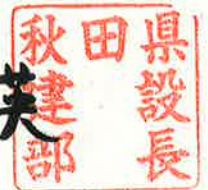 秋田県
建設
部長